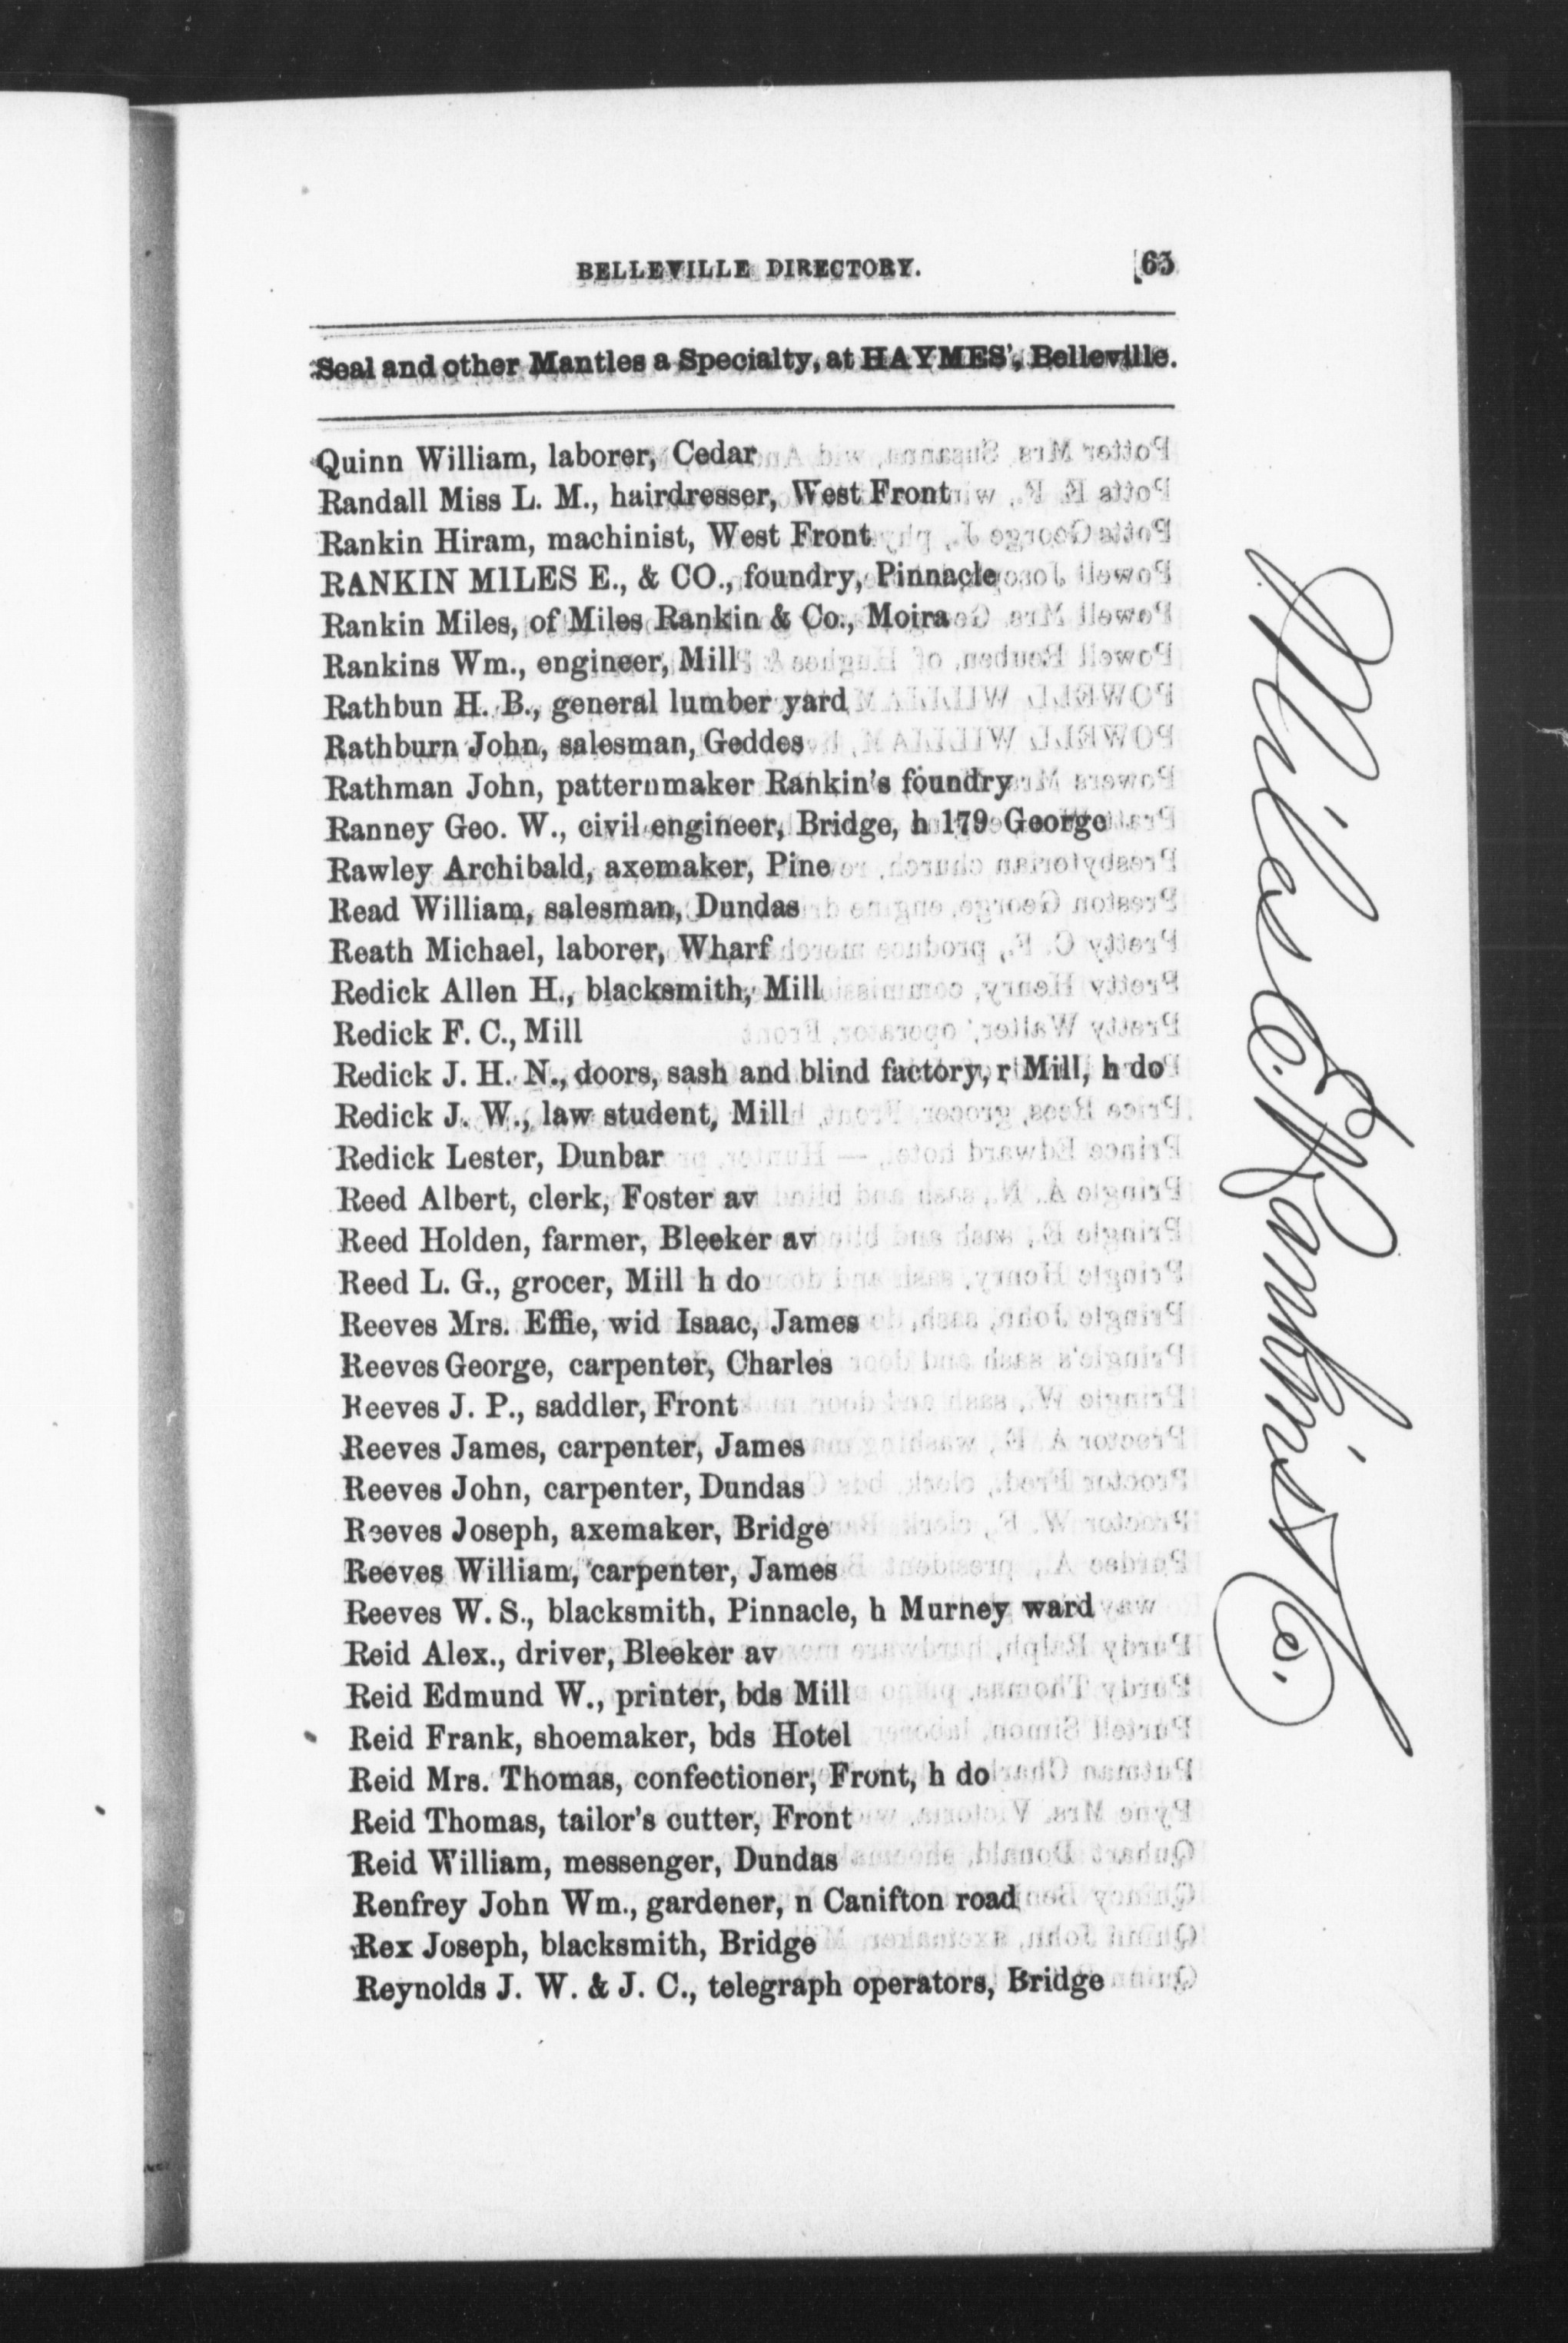 BELLEVILLE DIRECTORY. 63
Seal and other Mantles a Specialty, at HAYMES', Belleville.
Quinn William, laborer, Cedar
Randall Miss L. M., hairdresser, West Front
Rankin Hiram, machinist, West Front
RANKIN MILES E., & CO., foundry, Pinnacle
Rankin Miles, of Miles Rankin & Co., Moira
Rankins Wm., engineer, Mill
Rathbun H. B., general lumber yard
Rathburn John, salesman, Geddes
Rathman John, patternmaker Rankin's foundry
Ranney Geo. W., civil engineer, Bridge, h 179 George
Rawley Archibald, axemaker, Pine
Read William, salesman, Dundas
Reath Michael, laborer, Wharf
Redick Allen H., blacksmith, Mill
Redick F. C., Mill
Redick J. H. N., doors, sash and blind factory, r Mill, h do
Redick J. W., law student, Mill
Redick Lester, Dunbar
Reed Albert, clerk, Foster av
Reed Holden, farmer, Bleeker av
Reed L. G., grocer, Mill h do
Reeves Mrs. Effie, wid Isaac, James
Reeves George, carpenter, Charles
Reeves J. P., saddler, Front
Reeves James, carpenter, James
Reeves John, carpenter, Dundas
Reeves Joseph, axemaker, Bridge
Reeves William, carpenter, James
Reeves W. S., blacksmith, Pinnacle, h Murney ward
Reid Alex., driver, Bleeker av
Reid Edmund W., printer, bds Mill
Reid Frank, shoemaker, bds Hotel
Reid Mrs. Thomas, confectioner, Front, h do
Reid Thomas, tailor's cutter, Front
Reid William, messenger, Dundas
Renfrey John Wm., gardener, n Canifton road
Rex Joseph, blacksmith, Bridge
Reynolds J. W. & J. C., telegraph operators, Bridge
Miles E. Rankin & Co.